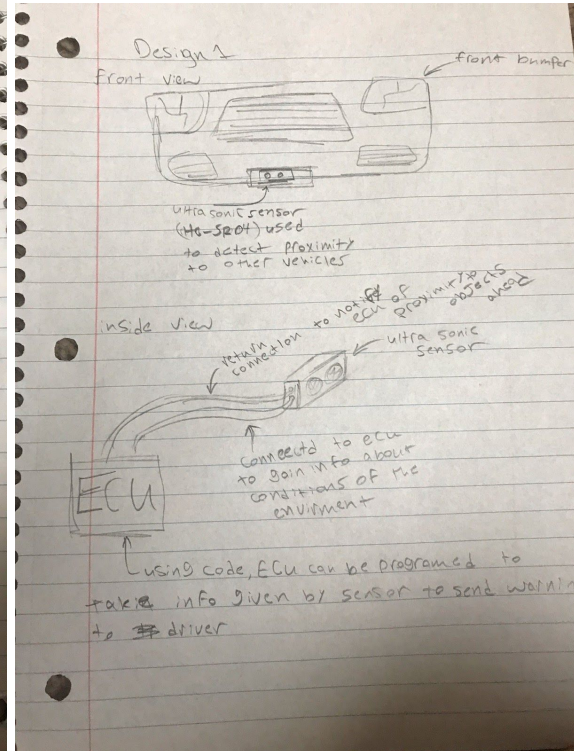 Design 1
front view
front bumper
ultrasonic sensor
(HC-SR04) used
to detect proximity
to other vehicles
inside view
return
connection to notify
ecu of
proximity to
objects
ahead
ultra sonic
sensor
connectd to ecu
to gain info about
conditions of the
envirment
ECU
using code, ECU can be programed to
take info given by sensor to send warnin
to driver